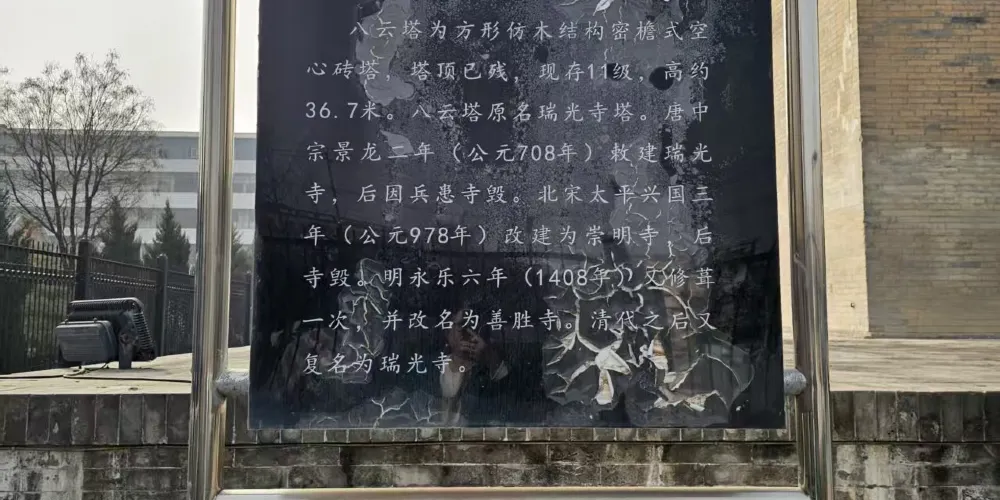 八云塔为方形仿木结构密檐式空
心砖塔，塔顶已残，现存11级，高约
36.7米。八云塔原名瑞光寺塔。唐中
宗景龙二年（公元708年）敕建瑞光
寺，后因兵患寺毁。北宋太平兴国三
年（公元978年）改建为崇明寺，后
寺毁。明永乐六年（1408年）又修葺
一次，并改名为善胜寺。清代之后又
复名为瑞光寺。